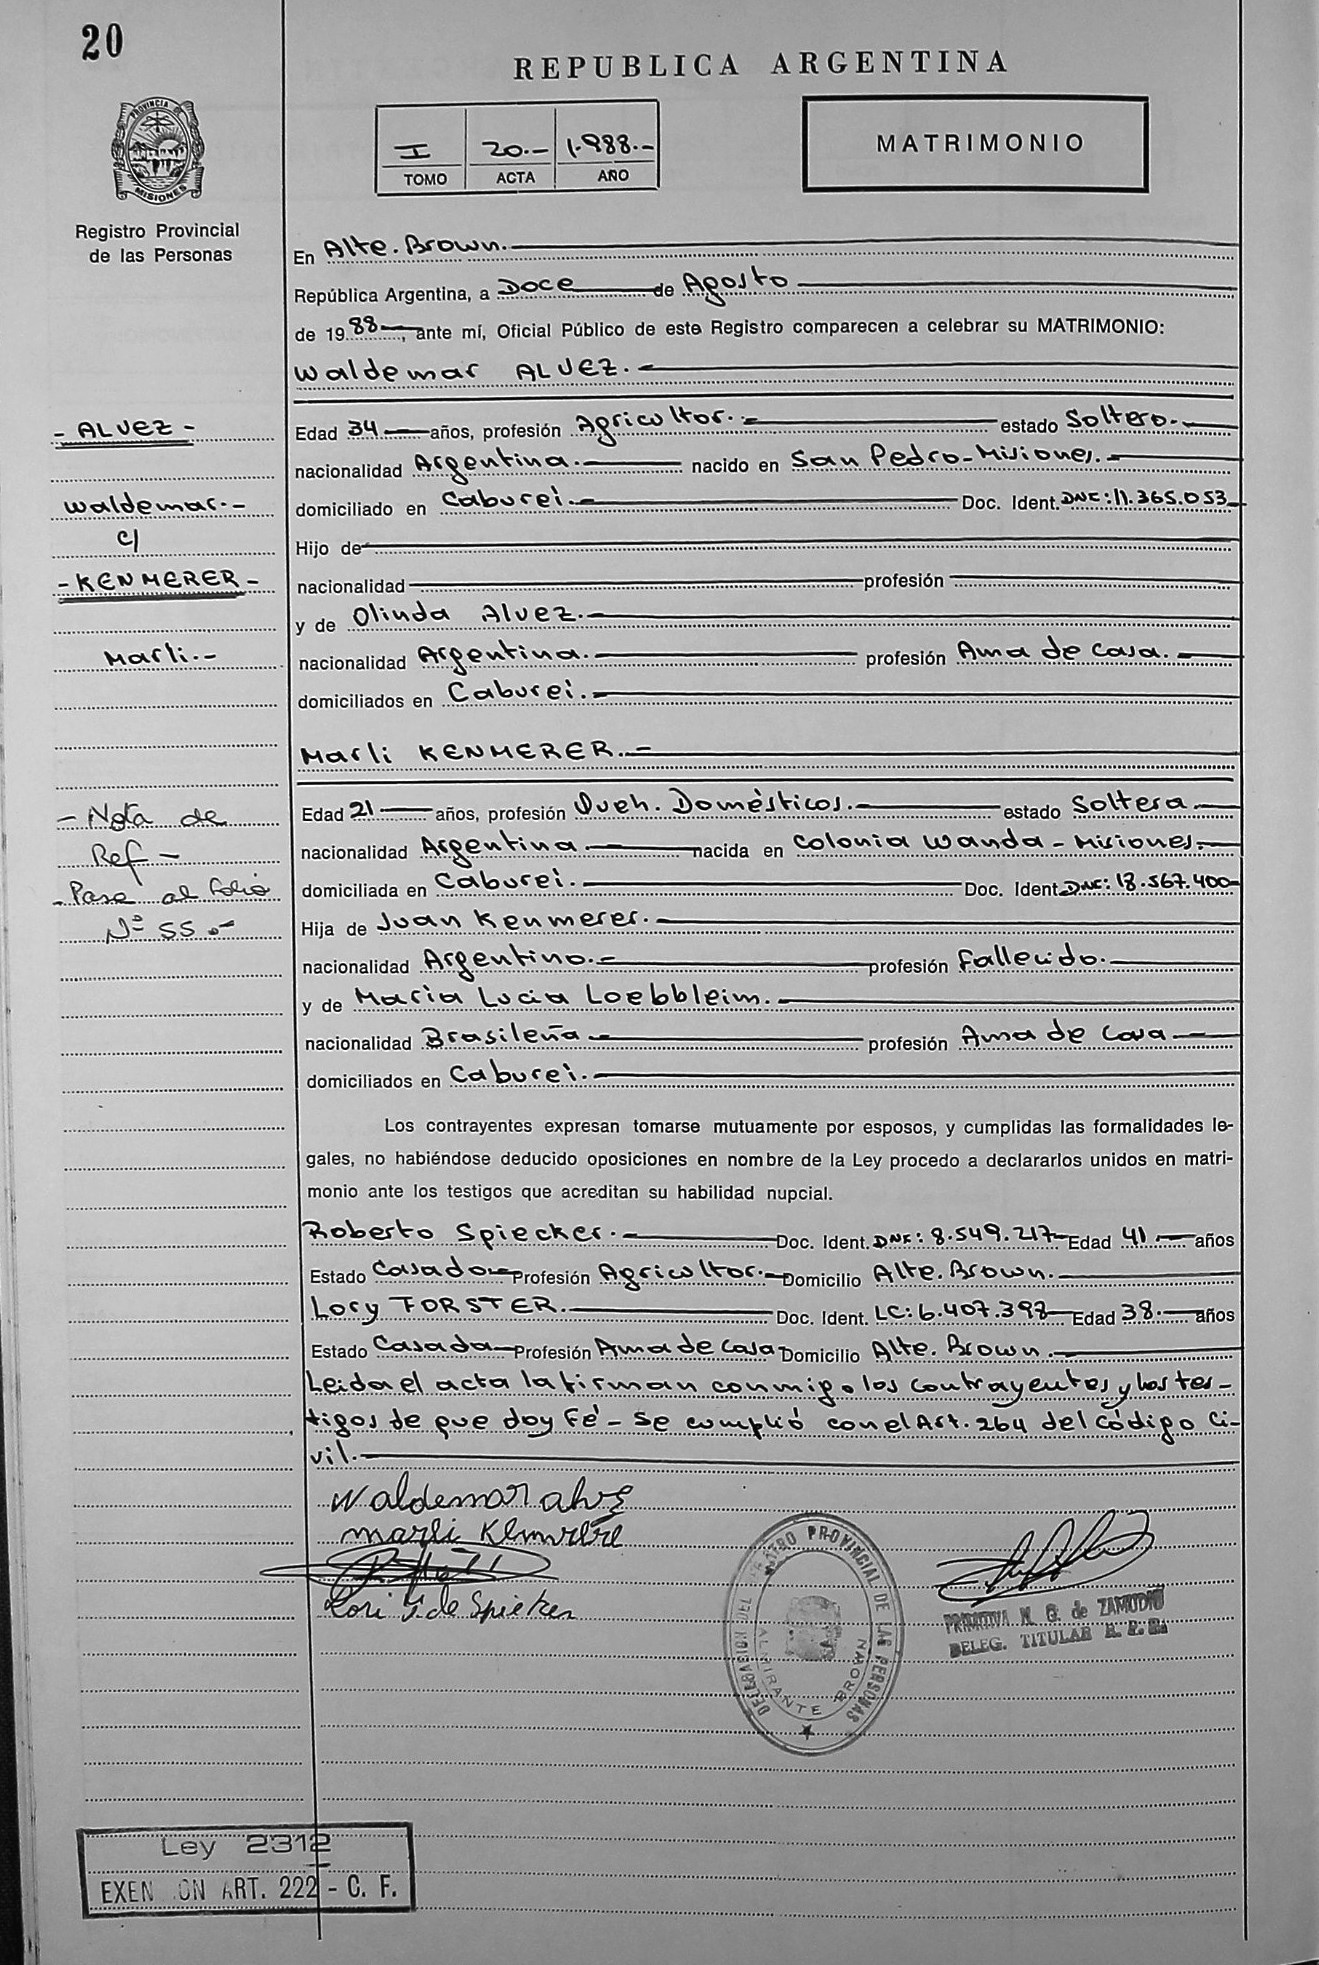 20
REPUBLICA ARGENTINA
PROVINCIA
MISIONES
Registro Provincial
de las Personas
I 20.- 1.988.-
TOMO ACTA AÑO
MATRIMONIO
En Alte. Brown.
República Argentina, a Doce de Agosto
de 1988, ante mí, Oficial Público de este Registro comparecen a celebrar su MATRIMONIO:
Waldemar ALVEZ.-
- ALVEZ -
Waldemar.-
c/
- KENMERER -
Marli.-
Edad 34 años, profesión Agricultor.- estado Soltero.-
nacionalidad Argentina.- nacido en San Pedro-Misiones.-
domiciliado en Caburei.- Doc. Ident. DNI: 11.365.053
Hijo de
nacionalidad profesión
y de Olinda Alvez.-
nacionalidad Argentina.- profesión Ama de Casa.-
domiciliados en Caburei.-
Marli KENMERER.-
- Nota de
Ref -
- Pase al folio
Nº 55.-
Edad 21 años, profesión Queh. Domésticos.- estado Soltera
nacionalidad Argentina nacida en Colonia Wanda - Misiones.-
domiciliada en Caburei. Doc. Ident. DNI: 18.567.400
Hija de Juan Kenmerer.-
nacionalidad Argentino.- profesión Fallecido.-
y de Maria Lucia Loebbleim.-
nacionalidad Brasileña profesión Ama de Casa
domiciliados en Caburei.-
Los contrayentes expresan tomarse mutuamente por esposos, y cumplidas las formalidades le-
gales, no habiéndose deducido oposiciones en nombre de la Ley procedo a declararlos unidos en matri-
monio ante los testigos que acreditan su habilidad nupcial.
Roberto Spiecker.- Doc. Ident. DNI: 8.549.217 Edad 41 años
Estado Casado Profesión Agricultor.- Domicilio Alte. Brown.
Lory FORSTER. Doc. Ident. LC: 6.407.398 Edad 38.- años
Estado Casada Profesión Ama de Casa Domicilio Alte. Brown.
Leida el acta la firman conmigo los contrayentes y los tes-
tigos de que doy Fé - Se cumplió con el Art. 264 del Código Ci-
vil.-
Waldemar alvez
marli Kemrere
Lori F. de Spieker
DELEGACION DEL REGISTRO PROVINCIAL DE LAS PERSONAS
ALMIRANTE BROWN
PRIMITIVA N. G. de ZAMUDIO
DELEG. TITULAR R. P. P.
Ley 2312
EXEN ION ART. 222 - C. F.